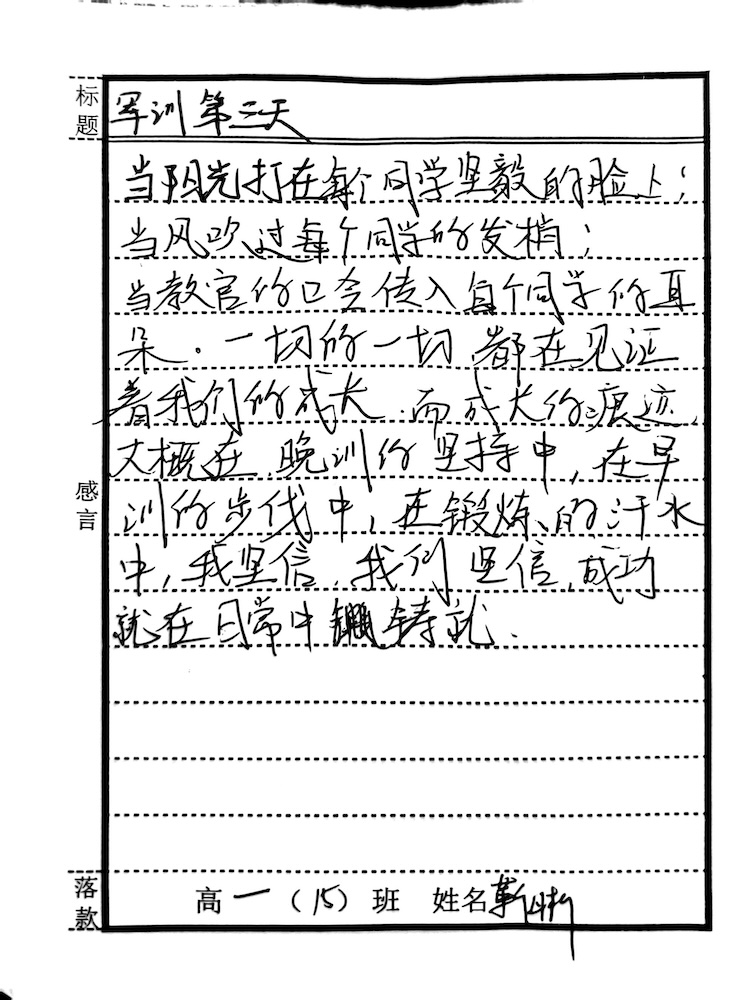 标题
军训第三天
当阳光打在每个同学坚毅的脸上；
当风吹过每个同学的发梢；
当教官的口令传入每个同学的耳
朵．一切的一切，都在见证
着我们的成长．而成长的痕迹，
大概在，晚训的坚持中，在早
训的步伐中，在锻炼的汗水
中，我坚信，我们坚信，成功
就在日常中铸就．
感言
落款
高一（15）班 姓名靳